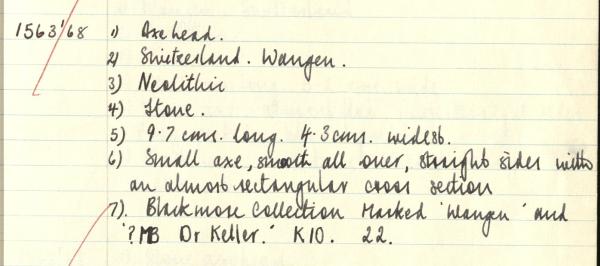 1563'/68 1) Axe head.
2) Switzerland. Wangen.
3) Neolithic
4) Stone.
5) 9.7 cms. long. 4.3 cms. widest.
6) Small axe, smooth all over, straight sides with
an almost rectangular cross section
7). Blackmore Collection Marked 'Wangen' and
'? MB Dr Keller.' K10. 22.